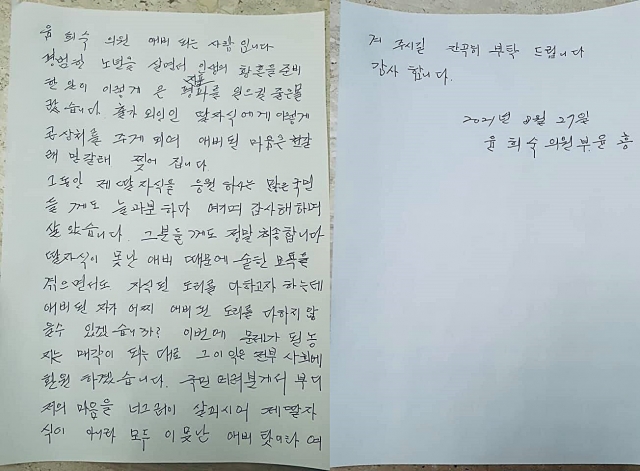 윤 희숙 의원 애비 되는 사람 입니다
평범한 노년을 살면서 인생의 황혼을 준비
한 일이 이렇게 큰 평지풍파를 일으킬 줄은몰
랐습니다 출가외인인 딸자식에게 이렇게
큰상처를 주게 되여 애비된 마음은 천갈
래 만갈래 찢어 집니다
그동안 제 딸자식을 응원 하시는 많은 국민
들 께도 늘과분하다 여기며 감사해하며
살았습니다. 그분들 께도 정말 죄송합니다
딸자식이 못난 애비 때문에 숱한 모욕을
겪으면서도 자식된 도리를 다하고자 하는데
애비된 자가 어찌 애비된 도리를 다하지 않
을수 있겠 습니까? 이번에 문제가 된 농
지는 매각이 되는 대로 그 이익은 전부 사회에
환원 하겠습니다. 국민 여러분께서 부디
저의 마음을 너그러이 살피시어 제 딸자
식이 아니라 모두 이 못난 애비 탓이라 여
겨 주시길 간곡히 부탁 드립니다
감사 합니다.
2021년 8월 27일
윤 희숙의원부 윤 흥